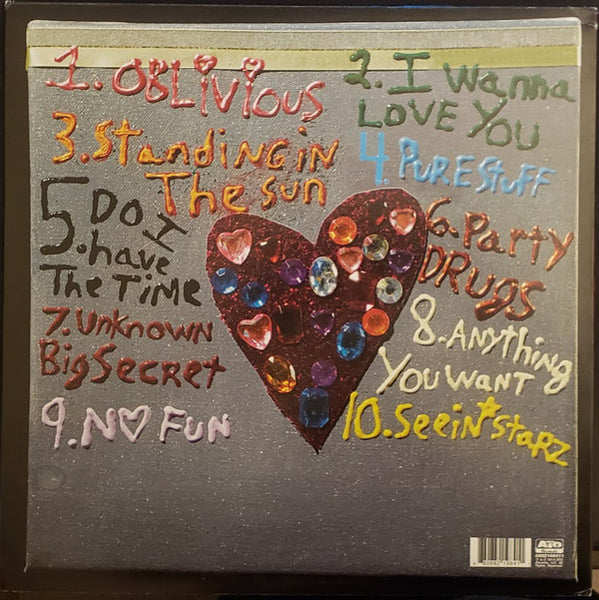 1. OBLIVIOUS
2. I Wanna
LOVE YOU
3. Standing in
The sun
4 PURE Stuff
5. Do I
have
The TIME
6. Party
DRUGS
7. Unknown
Big Secret
8. Anything
You Want
9. NO FUN
10. Seein starz
ASO